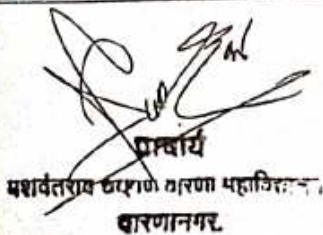 प्राचार्य
यशवंतराव चव्हाण वारणा महाविद्यालय,
वारणानगर.